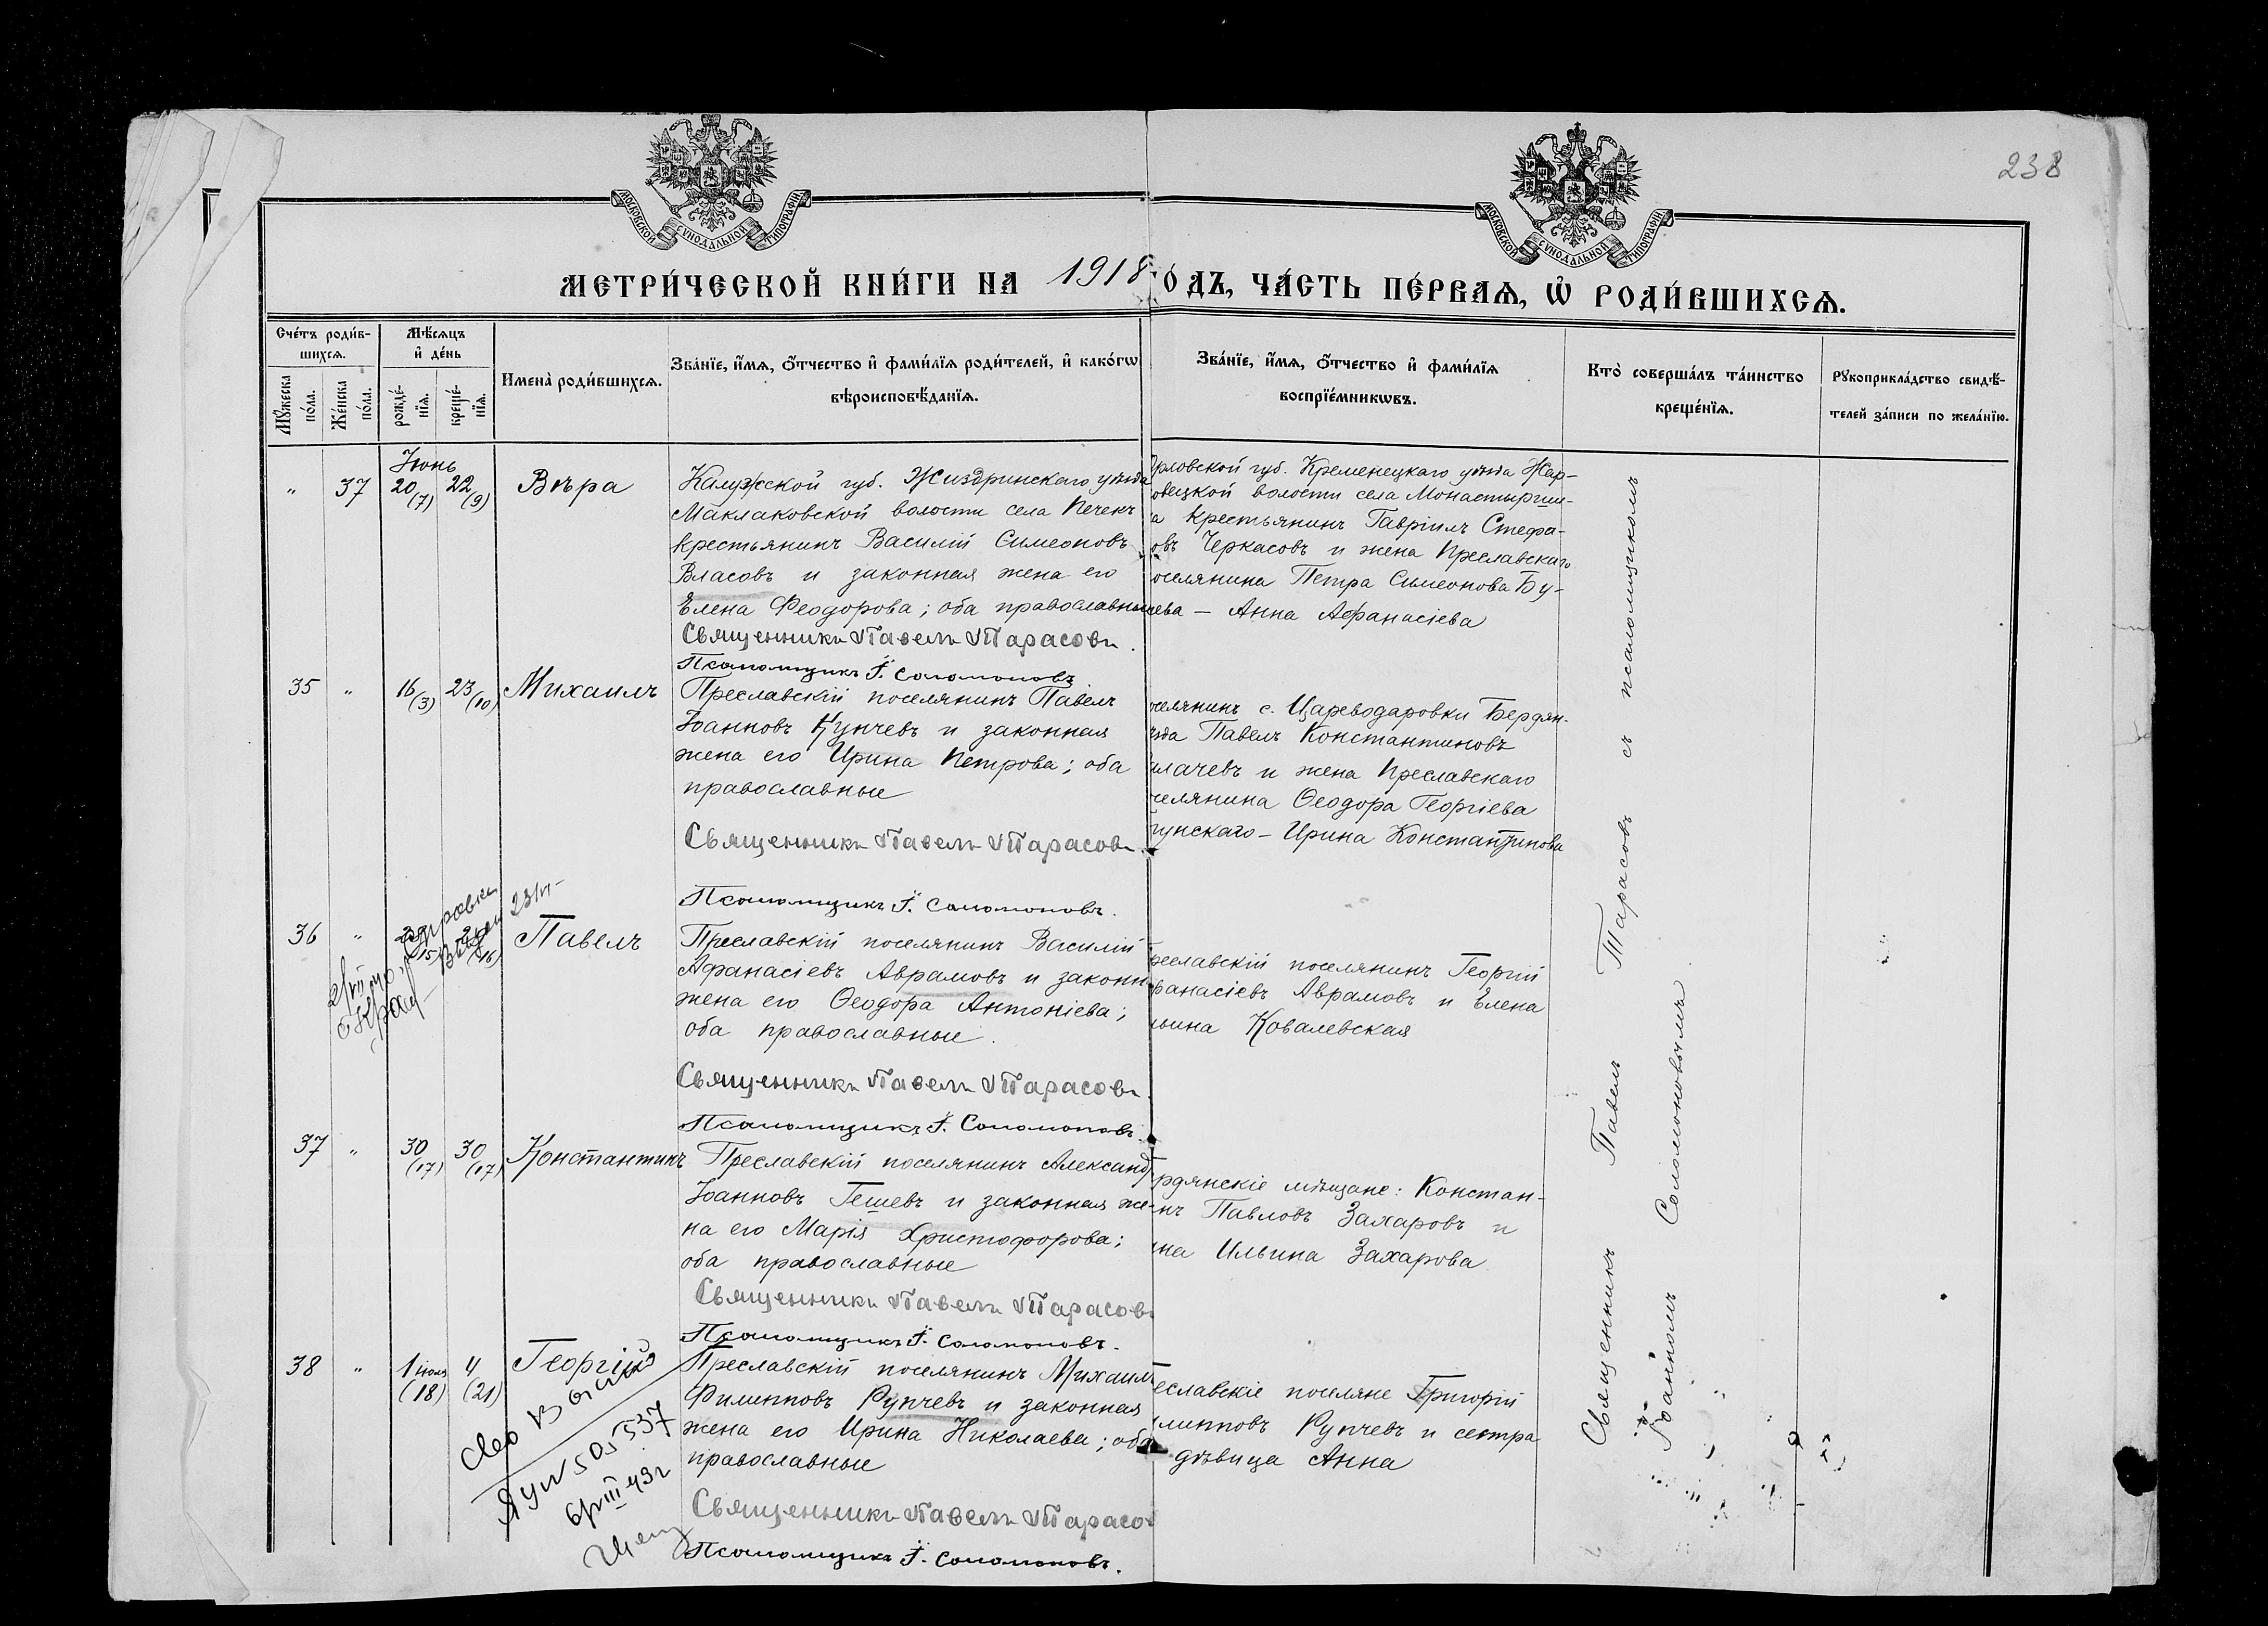 238
МОСКОВСКОЙ СѴНОДАЛЬНОЙ ТИПОГРАФІИ
МОСКОВСКОЙ СѴНОДАЛЬНОЙ ТИПОГРАФІИ
МЕТРИ́ЧЕСКОЙ КНИ́ГИ НА 1918 О́ДЪ, ЧА́СТЬ ПЕ́РВАѦ, Ѡ҆ РОДИ́ВШИХСѦ.
Сче́тъ роди́в-
шихсѧ.
Мꙋ́жеска по́ла.
Же́нска по́ла.
Мѣ́сѧцъ
и҆ де́нь
рожде́-
нїѧ.
креще́-
нїѧ.
Имена̀ роди́вшихсѧ.
Зва́нїе, и҆́мѧ, ѻ҆́тчество и҆ фами́лїѧ роди́телей, и҆ како́гѡ
вѣроисповѣ́данїѧ.
Зва́нїе, и҆́мѧ, ѻ҆́тчество и҆ фами́лїѧ
воспрїе́мникѡвъ.
Кто̀ соверша́лъ та́инство
креще́нїѧ.
Рꙋкоприкла́дство свидѣ́-
телей за́писи по жела́нїю.
Іюнь
" 37 20 (7) 22 (9) Вѣра
Калужской губ. Жиздринскаго уѣзда
Маклаковской волости села Печекъ
крестьянинъ Василій Симеоновъ
Власовъ и законная жена его
Елена Феодорова; оба православны
Священникъ Павелъ Тарасовъ.
Псаломщикъ І. Соломоновъ
рловской губ. Кременецкаго уѣзда Жар-
овецкой волости села Монастырщи-
а крестьянинъ Гавріилъ Стефа-
овъ Черкасовъ и жена Преславскаго
оселянина Петра Симеонова Бу-
чева — Анна Афанасіева
35 " 16 (3) 23 (10) Михаилъ
Преславскій поселянинъ Павелъ
Іоанновъ Купчевъ и законная
жена его Ирина Петрова; оба
православные
Священникъ Павелъ Тарасовъ.
Псаломщикъ І. Соломоновъ.
оселянинъ с. Цареводаровки Бердян-
ѣзда Павелъ Константиновъ
лачевъ и жена Преславскаго
оселянина Ѳеодора Георгіева
гунскаго — Ирина Константинова
36 " (15) (16) Павелъ
Преславскій поселянинъ Василій
Афанасіевъ Аврамовъ и законн
жена его Ѳеодора Антоніева;
оба православные.
Священникъ Павелъ Тарасовъ.
Псаломщикъ І. Соломоновъ.
реславскій поселянинъ Георгій
фанасіевъ Аврамовъ и Елена
ьина Ковалевская
37 " 30 (17) 30 (17) Константинъ
Преславскій поселянинъ Александ
Іоанновъ Гешевъ и законная же-
на его Марія Христофорова;
оба православные
Священникъ Павелъ Тарасовъ
Псаломщикъ І. Соломоновъ.
рдянскіе мѣщане: Констан-
нъ Павловъ Захаровъ и
на Ильина Захарова
38 " 1 июля (18) 4 (21) Георгій
Преславскій поселянинъ Михаил
Филипповъ Рупчевъ и законная
жена его Ирина Николаева; оба
православные
Священникъ Павелъ Тарасов
Псаломщикъ І. Соломоновъ.
еславскіе поселяне Григорій
липповъ Рупчевъ и сестра
дѣвица Анна
505537
6/III 43г
Священникъ Павелъ Тарасовъ съ псаломщикомъ
Іоанномъ Соломоновымъ.